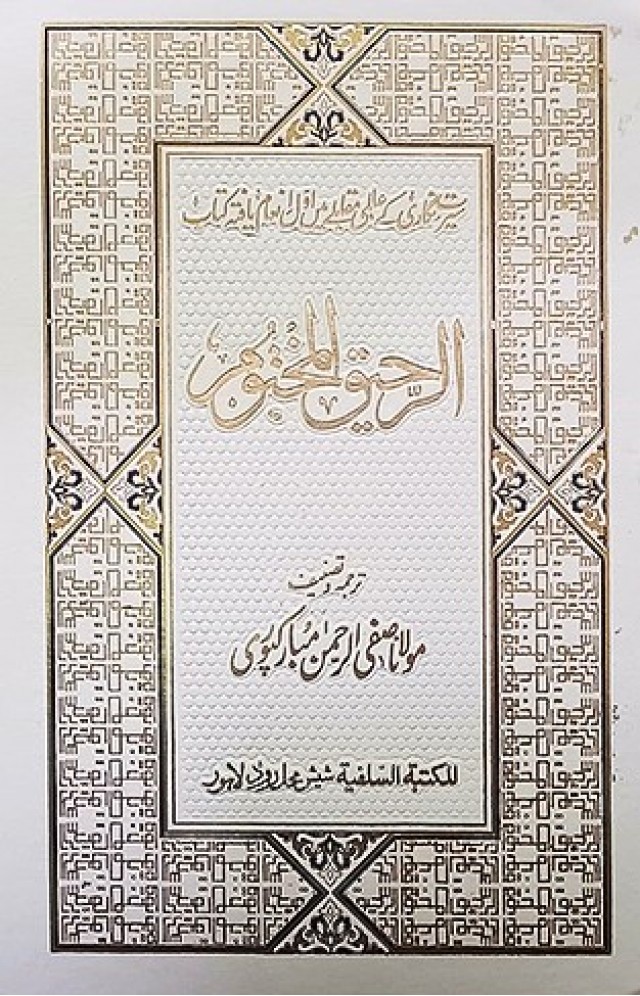 سیرت نگاری کے عالمی مقابلے میں اوّل انعام یافتہ کتاب
الرحیق المختوم
ترجمہ و تصنیف
مولانا صفی الرحمن مبارکپوری
المکتبة السلفیة شیش محل روڈ لاہور